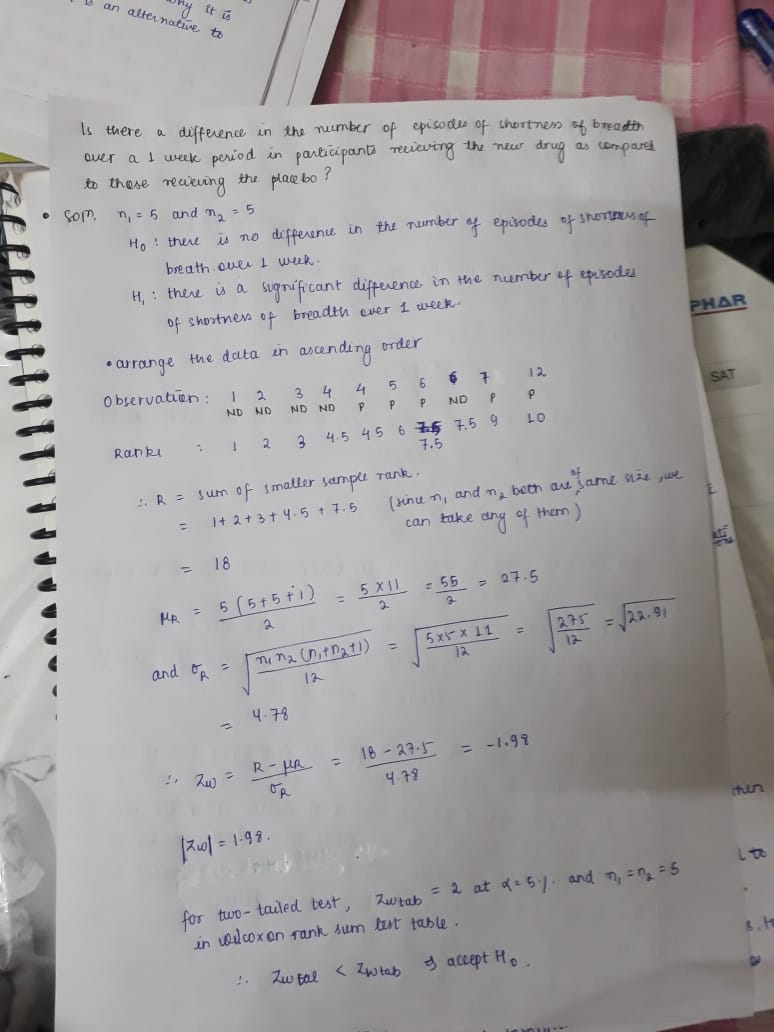 why it is
is an alternative to
Is there a difference in the number of episodes of shortness of breadth
over a 1 week period in participants recieving the new drug as compared
to those recieving the placebo?
• Solⁿ. n₁ = 5 and n₂ = 5
H₀ : there is no difference in the number of episodes of shortness of
breath over 1 week.
H₁ : there is a significant difference in the number of episodes
of shortness of breadth over 1 week.
• arrange the data in ascending order
Observation : 1 2 3 4 4 5 6 6 7 12
ND ND ND ND P P P ND P P
Ranks : 1 2 3 4.5 4.5 6 7.5 7.5 9 10
∴ R = sum of smaller sample rank.
= 1+2+3+4.5+7.5 (since n₁ and n₂ both are of same size, we
can take any of them)
= 18
μR = 5(5+5+1)/2 = 5×11/2 = 55/2 = 27.5
and σR = √(n₁n₂(n₁+n₂+1)/12) = √(5×5×11/12) = √(275/12) = √22.91
= 4.78
∴ Zw = R-μR/σR = 18-27.5/4.78 = -1.98
|Zw| = 1.98.
for two-tailed test, Zwtab = 2 at α = 5%. and n₁ = n₂ = 5
in wilcoxon rank sum test table.
∴ Zwcal < Zwtab ⇒ accept H₀.
PHAR
SAT
then